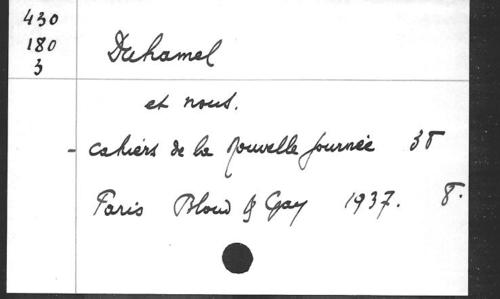 430
180
3
Duhamel
et nous.
- cahiers de la Nouvelle Journée 38
Paris Bloud & Gay 1937. 8.